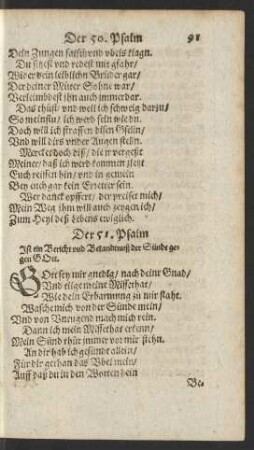 Der 50. Psalm 91
Dein Zungen falsch und vbels klagn.
Du sitzest vnd redest mit gfahr/
Wider dein leiblichn Bruder gar/
Der deiner Muter Sohne war/
Verleimbdest ihn auch immerdar.
Das thust vnd weil ich schweig darzu/
So meinstu/ ich werd sein wie du.
Doch will ich straffen disen Gselln/
Vnd will dirs vnder Augen stelln.
Merckt doch diß/ die jr vergeßt
Meiner/ daß ich werd kommen zletzt
Euch reissen hin/ vnd in gemein
Bey euch gar kein Erretter sein.
Wer danck opffert/ der preiset mich/
Mein Weg ihm will auch zeygen ich/
Zum Heyl deß Lebens ewiglich.
Der 51. Psalm
Ist ein Bericht vnd Bekandtnuß der Sünde ge-
gen GOtt.
GOtt sey mir gnedig/ nach deinr Gnad/
Vnd tilge meine Missethat/
Wie dein Erbarmung zu mir staht.
Wasche mich von der Sünde mein/
Vnd von Vntugend mach mich rein.
Dann ich mein Missethat erkenn/
Mein Sünd thür immer vor mir stehn.
An dir hab ich gesündt allein/
Für dir gethan das Vbel mein/
Auff daß du in den Worten dein
Be-